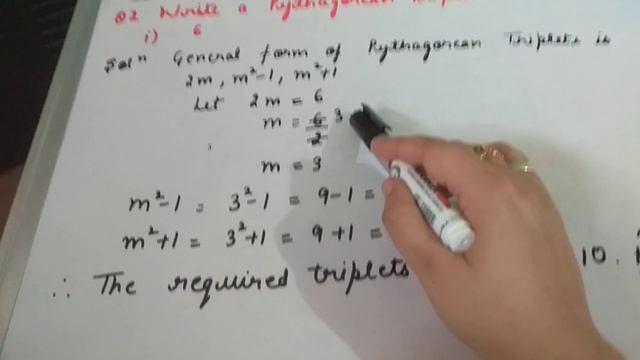 Q2 Write a Pythagorean
i) 6
Solⁿ General form of Pythagorean Triplets is
2m, m²-1, m²+1
Let 2m = 6
m = 6/2 3
m = 3
m²-1 = 3²-1 = 9-1 =
m²+1 = 3²+1 = 9+1 =
∴ The required triplets 10.